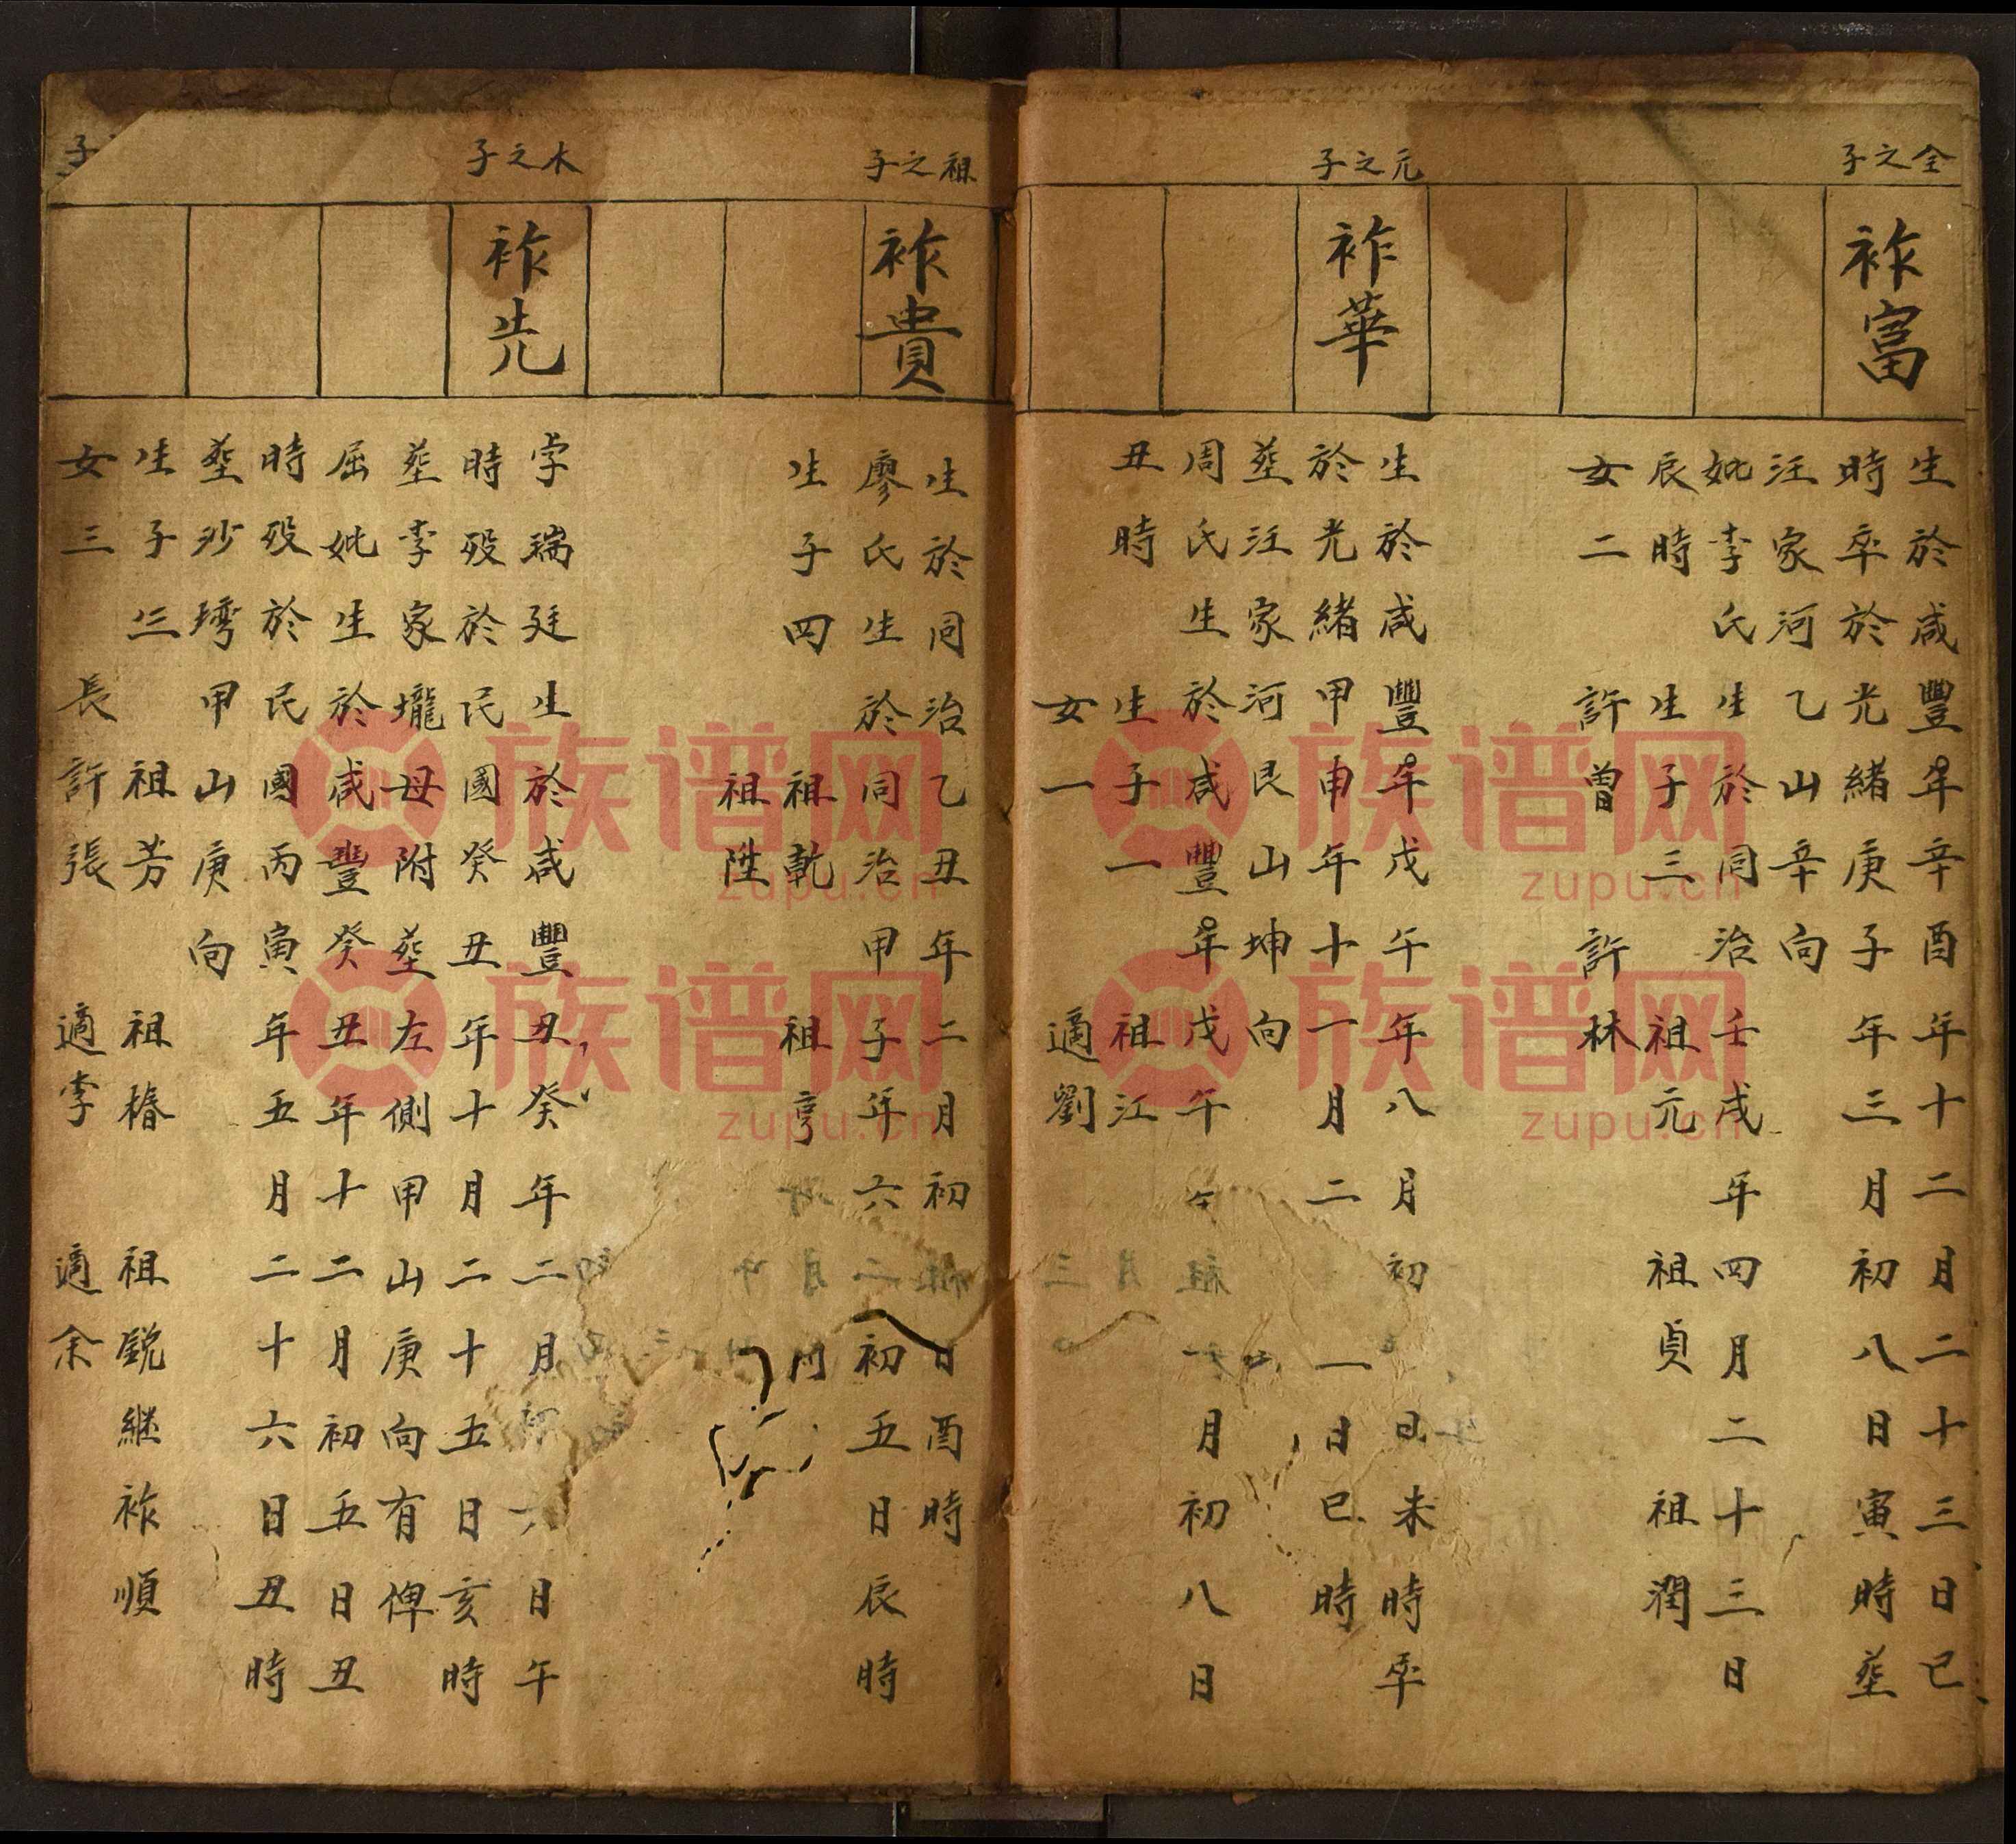 全之子
祚富
生於咸豐年辛酉年十二月二十三日巳
時卒於光緒庚子年三月初八日寅時塟
汪家河乙山辛向
妣李氏生於同治壬戌年四月二十三日
辰時生子三祖元祖貞祖潤
女二許曾許林
元之子
祚華
生於咸豐年戊午年八月初一日未時卒
於光緒甲申年十一月二一日巳時
塟汪家河艮山坤向
周氏生於咸豐年戊午年十一月初八日
丑時生子一祖江
女一適劉
祖之子
祚貴
生於同治乙丑年二月初日酉時
廖氏生於同治甲子年六初五日辰時
生子四祖乾祖亨
祖陞
木之子
祚先
字瑞廷生於咸豐丑癸年二月初六日午
時歿於民國癸丑年十月二十五日亥時
塟李家壠母附塟左側甲山庚向有俾
屈妣生於咸豐癸丑年十二月初五日丑
時歿於民國丙寅年五月二十六日丑時
塟沙塆甲山庚向
生子三祖芳祖椿祖銳繼祚順
女三長許張適李適余
子
族谱网
zupu.cn
族谱网
zupu.cn
族谱网
zupu.cn
族谱网
zupu.cn